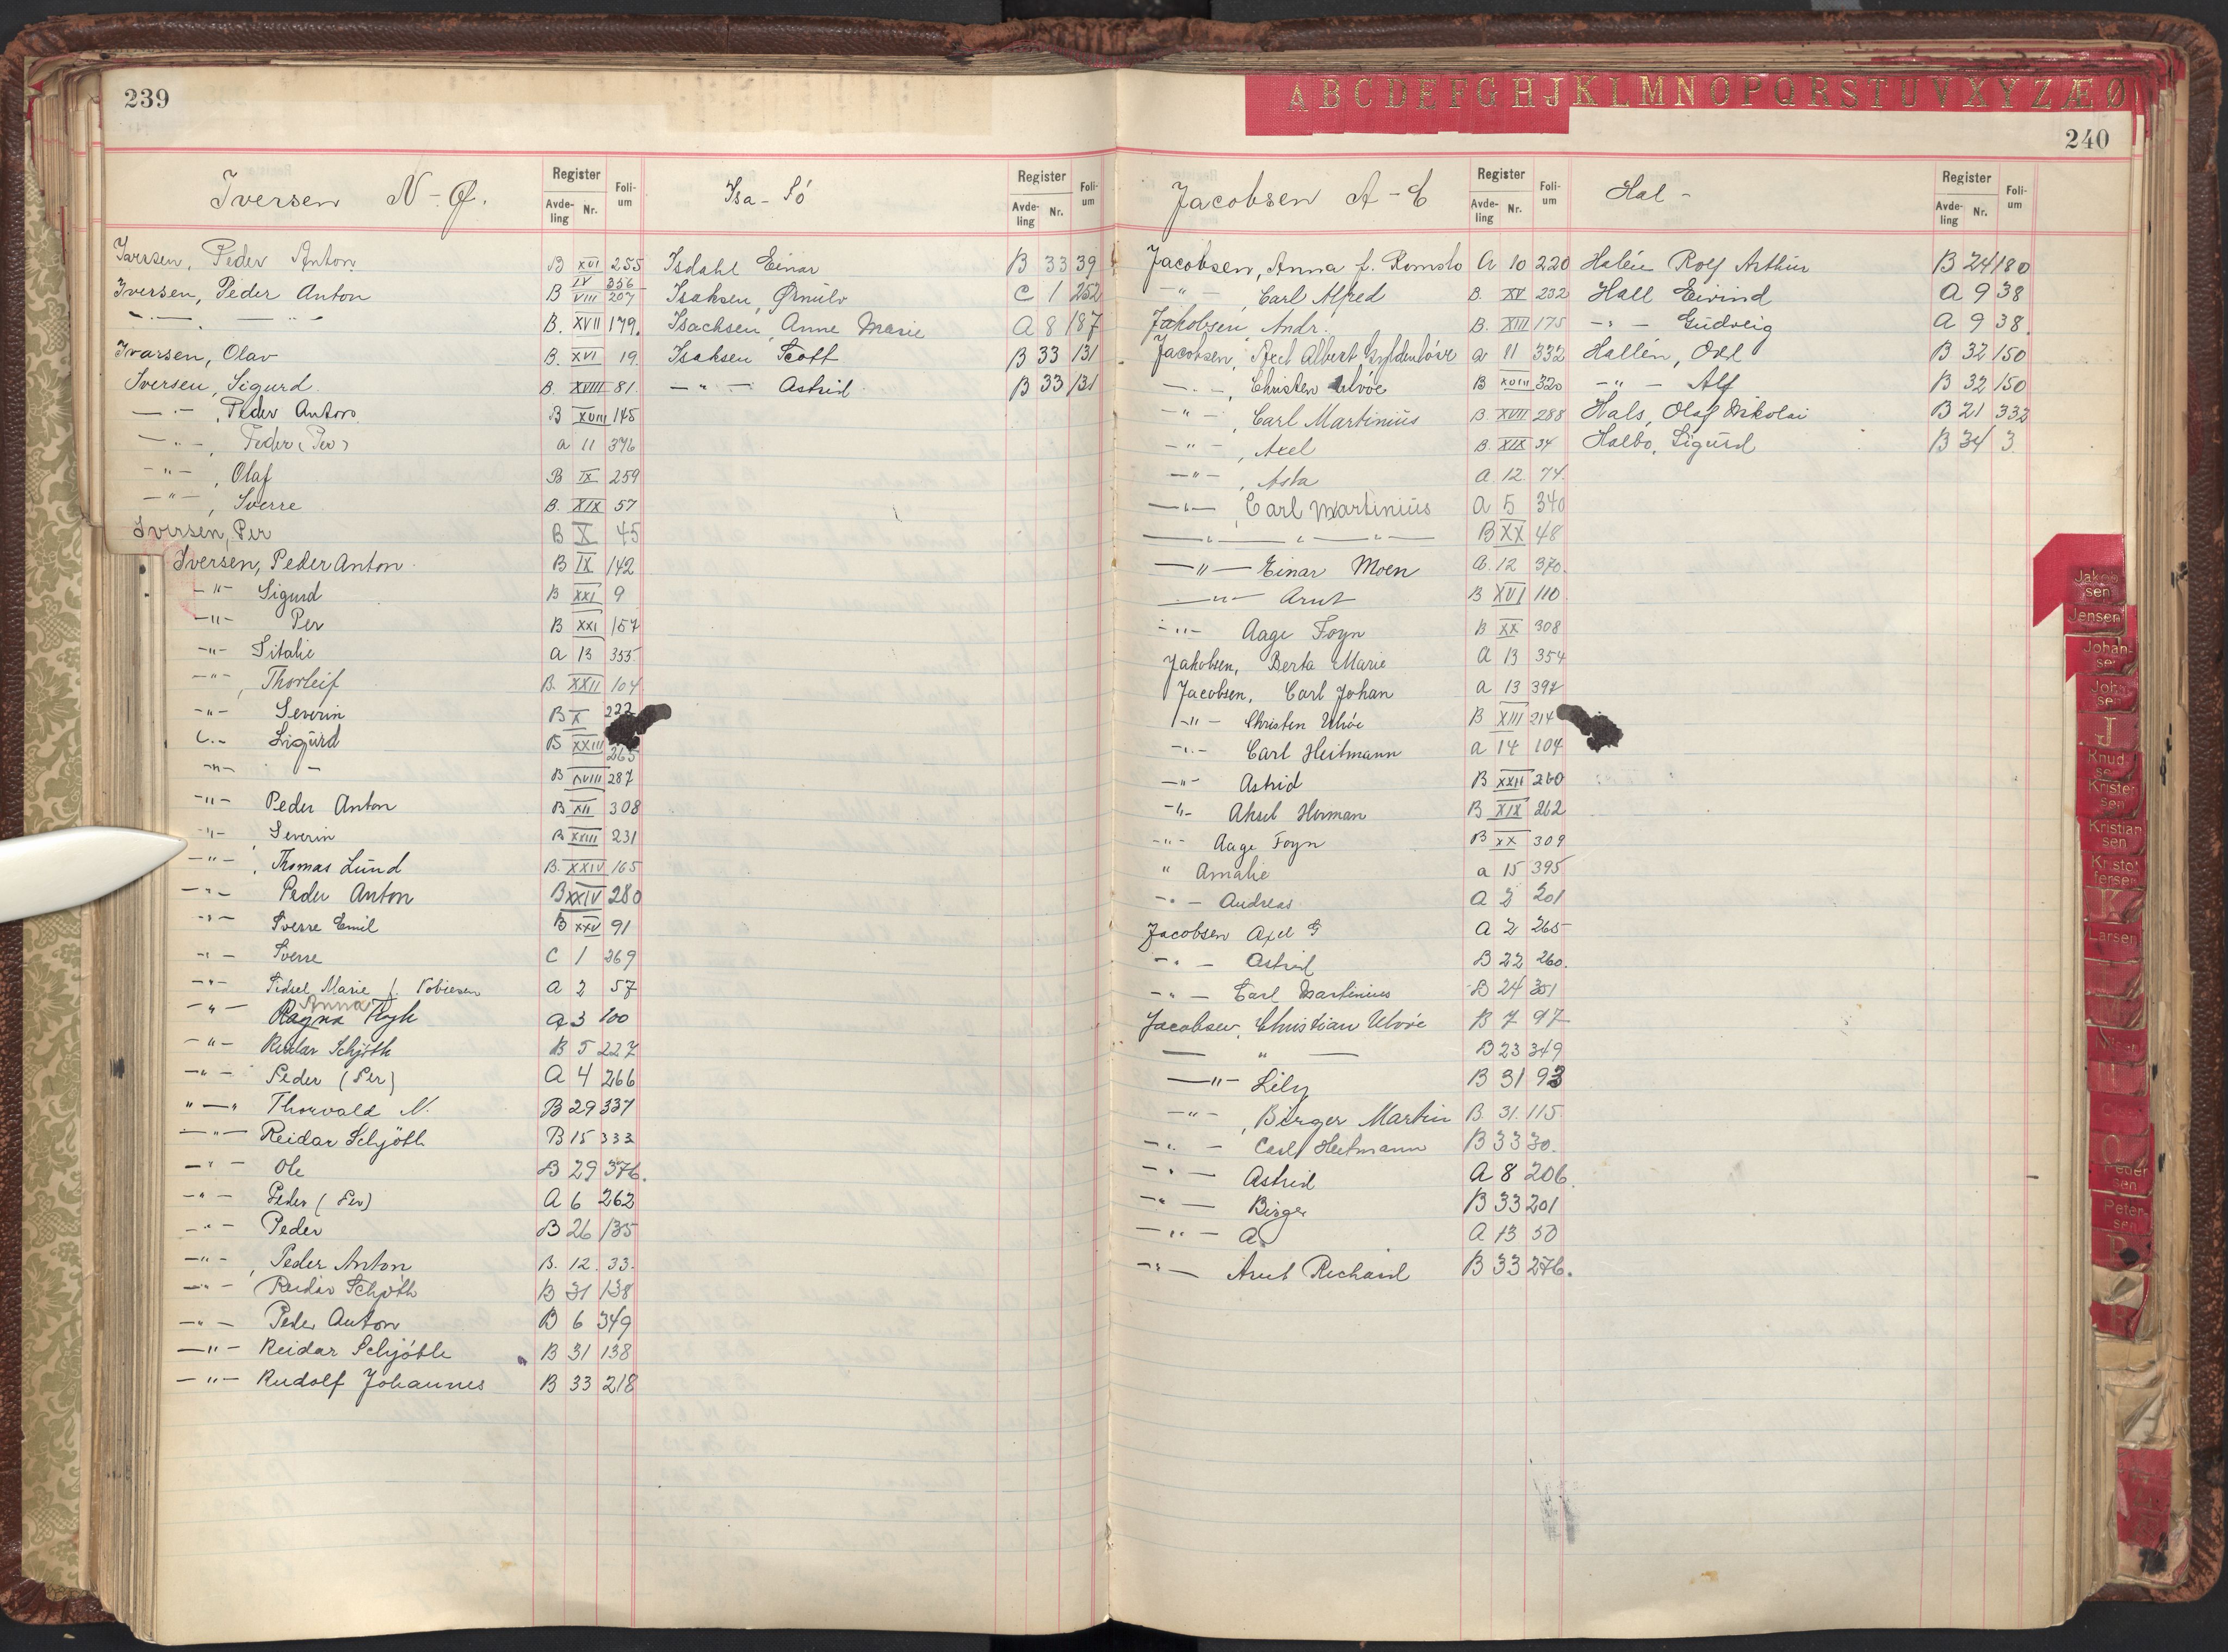 239
Iversen N-Ø.
Register
Avdeling Nr.
Folium
Iversen, Peder Anton B XVI 255
IV 356
Iversen, Peder Anton B VIII 207
—·— — " — B. XVII 179.
Ivarsen, Olav B. XVI 19
Iversen, Sigurd. B. XVIII 81.
—·— , Peder Anton B XVIII 145
—"— , Peder (Per) a 11 376
—"— , Olaf B IX 259
—"— , Sverre B. XIX 57
Iversen, Per B X 45
Iversen, Peder Anton. B IX 142
—"— Sigurd B XXI 9
—"— Per B XXI 157
—"— Sitalie a 13 355
—"— , Thorleif B. XXII 104
—"— Severin B X 222
—"— Sigurd B XXIII 265
—"— — B XVIII 287
—"— Peder Anton B XII 308
—"— , Severin B XXIII 231
—"— , Thomas Lund B. XXIV 165
—"— Peder Anton B XXIV 280
—"— Sverre Emil B XXV 91
—"— Sverre C 1 269
—"— Sidsel Marie f. Tobiesen A 2 57
Anna
—"— Ragna Rygh a 3 100
—"— Reidar Schjöth B 5 227
—"— Peder (Per) A 4 266
"—" Thorvald N. B 29 337
—"— Reidar Schjöth B 15 333
—"— Ole B 29 376.
—"— Peder (Per) A 6 262
—"— Peder B 26 135
—"— , Peder Anton B. 12. 33.
—"— Reidar Schjöth B 31 138
—"— Peder Anton B 6 349
—"— Reidar Schjöth B 31 138
—"— Rudolf Johannes B 33 218
Isa - Só
Register
Avdeling Nr.
Folium
Isdahl Einar B 33 39
Isaksen, Ørnulv C 1 252
Isachsen Anne Marie A 8 187
Isaksen Scott B 33 131
—"— Astrid B 33 131
A B C D E F G H J K L M N O P Q R S T U V X Y Z Æ Ø
240
Jacobsen A-C
Register
Avdeling Nr.
Folium
Jacobsen, Anna f. Romslo A 10 220
—"— , Carl Alfred B. XV 232
Jakobsen Andr. B. XIII 175
Jacobsen, Axel Albert Gyldenlöve a 11 332
—"— , Christen Ulvöe B XVIII 320
—"— , Carl Martinius B. XVIII 288
—"— , Axel B. XIX 34
—"— , Asta A 12. 74.
—"— , Carl Martinius A 5 340
—"— " —"— B XX 48
—"— Einar Moen A. 12 370.
—"— Arnt B XVI 110
—"— Aage Foyn B XX 308
Jakobsen, Berta Marie A 13 354
Jacobsen, Carl Johan a 13 397
—"— Christen Ulvöe B XIII 214
—"— Carl Heitmann a 14 104
—"— Astrid B XXII 260
—"— Aksel Herman B XIX 262
—"— Aage Foyn B XX 309
" Amalie a 15 395
—"— Andreas A 2 201
Jacobsen Axel G A 2 265
—"— Astrid B 22 260.
—"— Carl Martinius B 24 351
Jacobsen, Christian Ulvöe B 7 97
— " — B 23 349
—"— Lily B 31 93
—"— , Birger Martin B. 31. 115
—"— Carl Heitmann B 33 30.
—"— Astrid A 8 206.
—"— Birger B 33 201
—"— A. A 13 50
—"— Arnt Richard B 33 276.
Hal -
Register
Avdeling Nr.
Folium
Halén Rolf Arthur B 24 180
Hall Eivind A 9 38
—"— Gudveig A 9 38.
Hallén, Odd B 32 150
—"— Alf B 32 150
Hals, Olaf Nikolai B 21 332
Halbo, Sigurd B 34 3
Jakobsen
Jensen
Johansen
Johnsen
J
Knudsen
Kristensen
Kristiansen
Kristoffersen
K
Larsen
O
Pedersen
Petersen
P
R